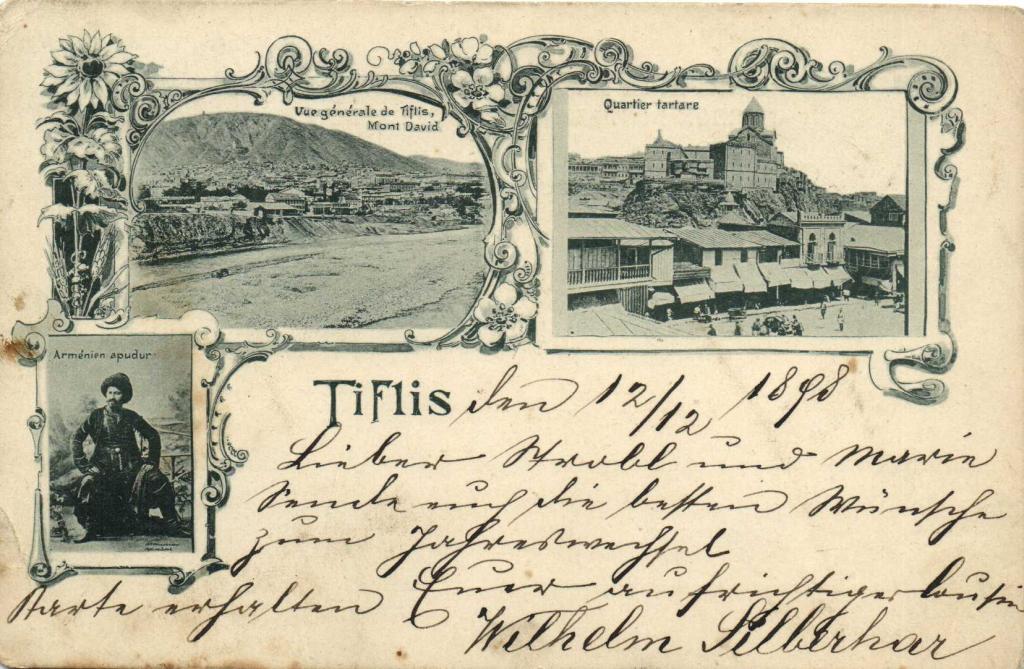 Vue générale de Tiflis,
Mont David
Quartier tartare
Arménien apudur
Tiflis den 12/12 1898
Lieber Strobl und Marie
Sende euch die besten Wünsche
zum Jahreswechsel
Karte erhalten Euer aufrichtiger Cousin
Wilhelm Silberhar